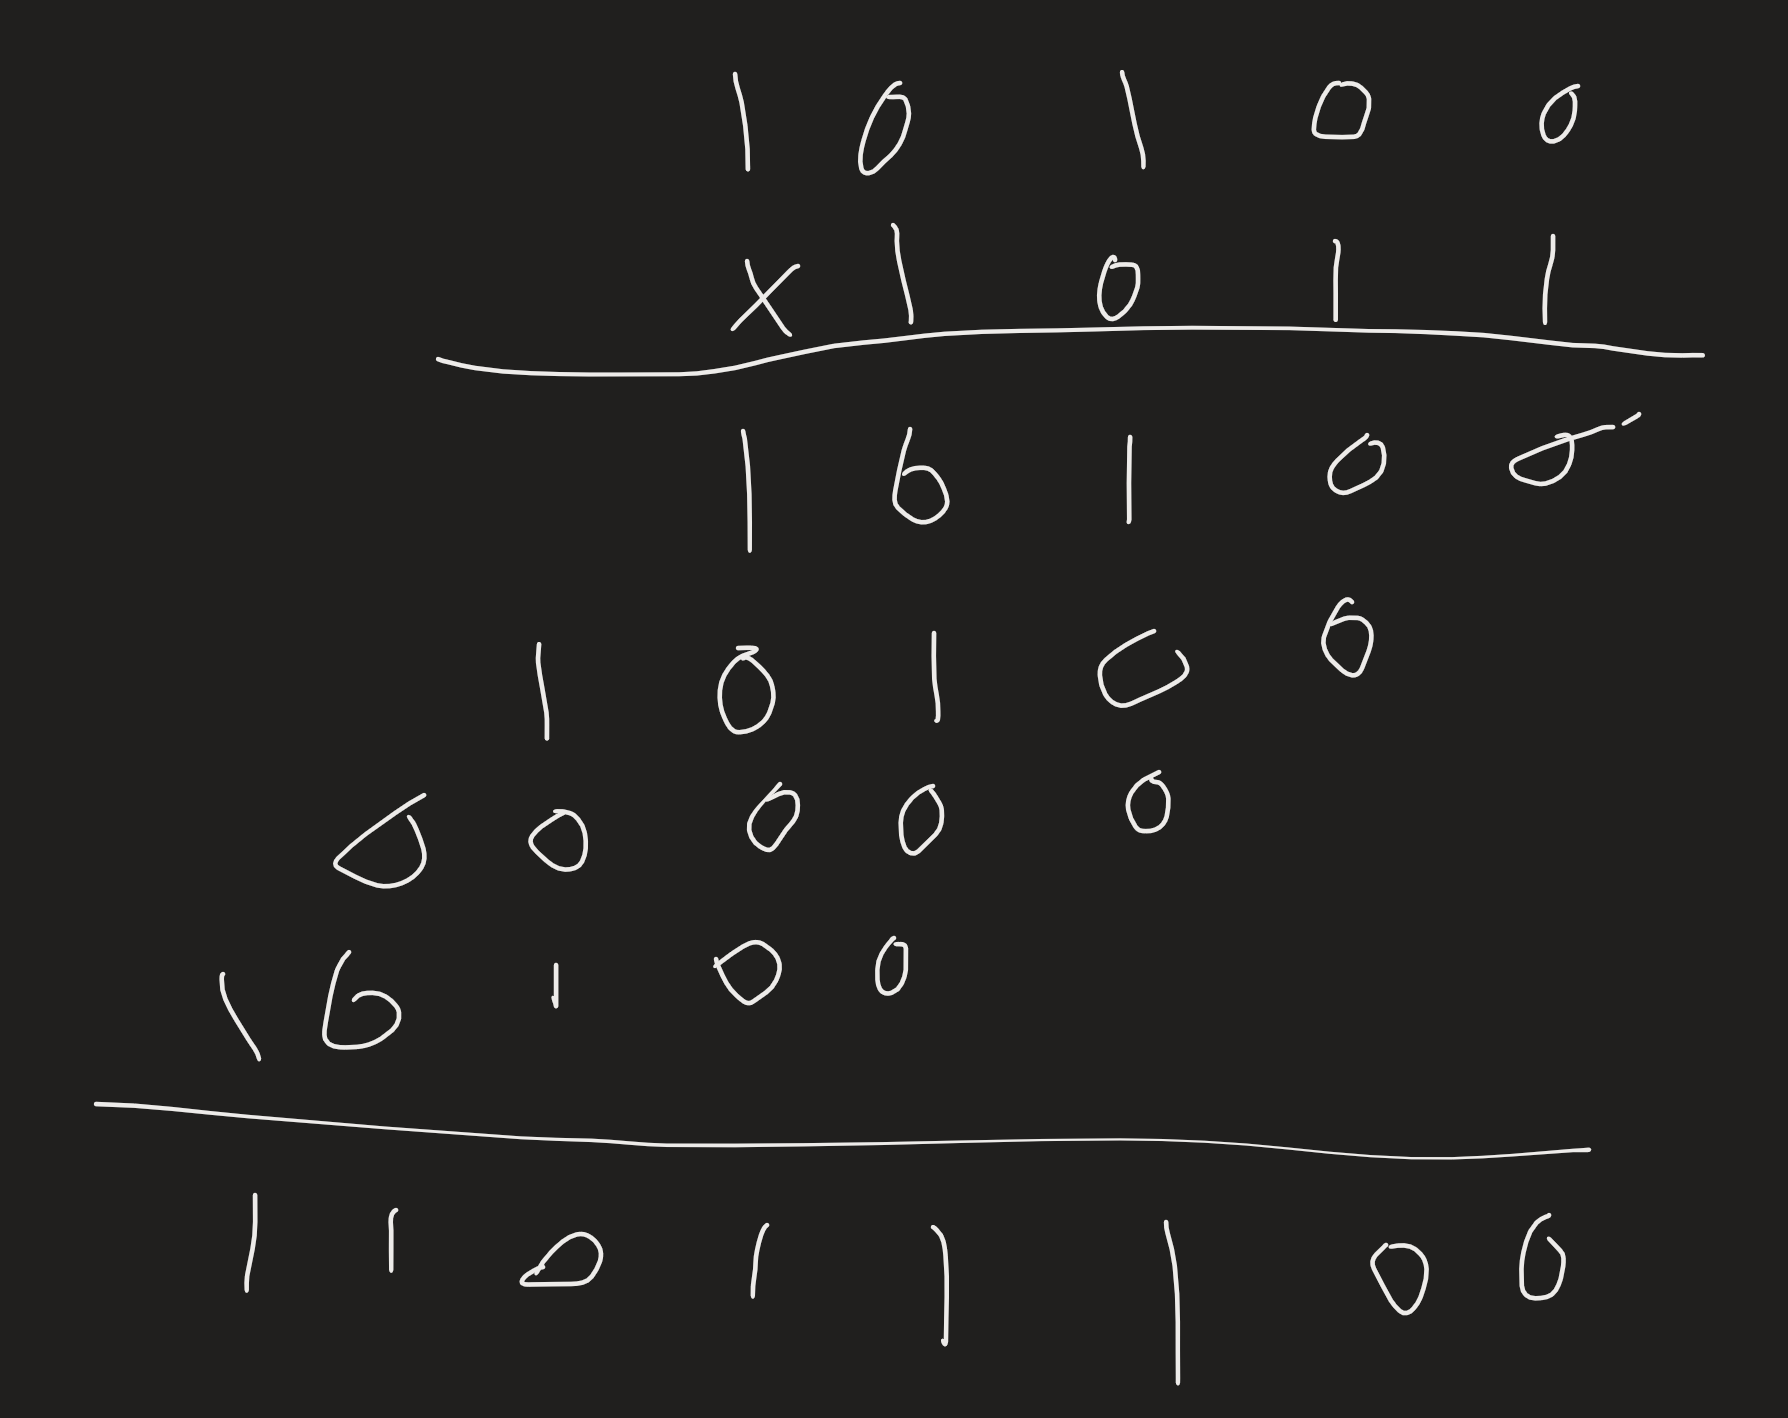 1 0 1 0 0
x 1 0 1 1
1 0 1 0 0
1 0 1 0 0
0 0 0 0 0
1 0 1 0 0
1 1 0 1 1 1 0 0